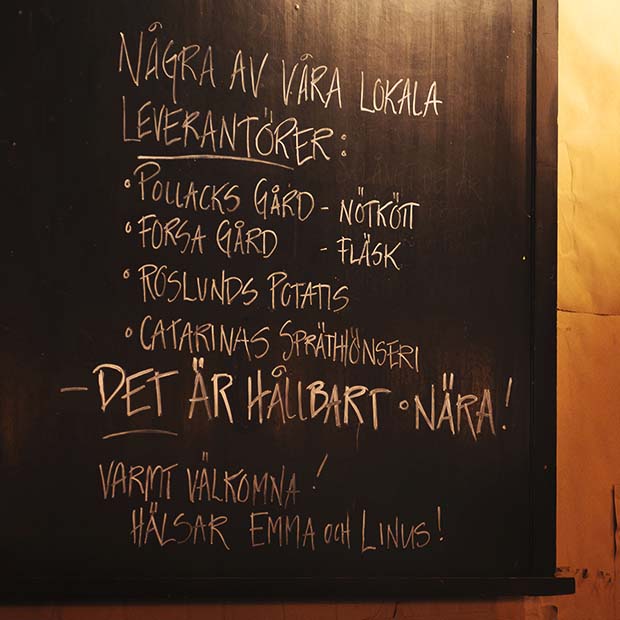 NÅGRA AV VÅRA LOKALA
LEVERANTÖRER:
• POLLACKS GÅRD - NÖTKÖTT
• FORSA GÅRD - FLÄSK
• ROSLUNDS POTATIS
• CATARINAS SPRÄTHÖNSERI
- DET ÄR HÅLLBART • NÄRA!
VARMT VÄLKOMNA!
HÄLSAR EMMA OCH LINUS!